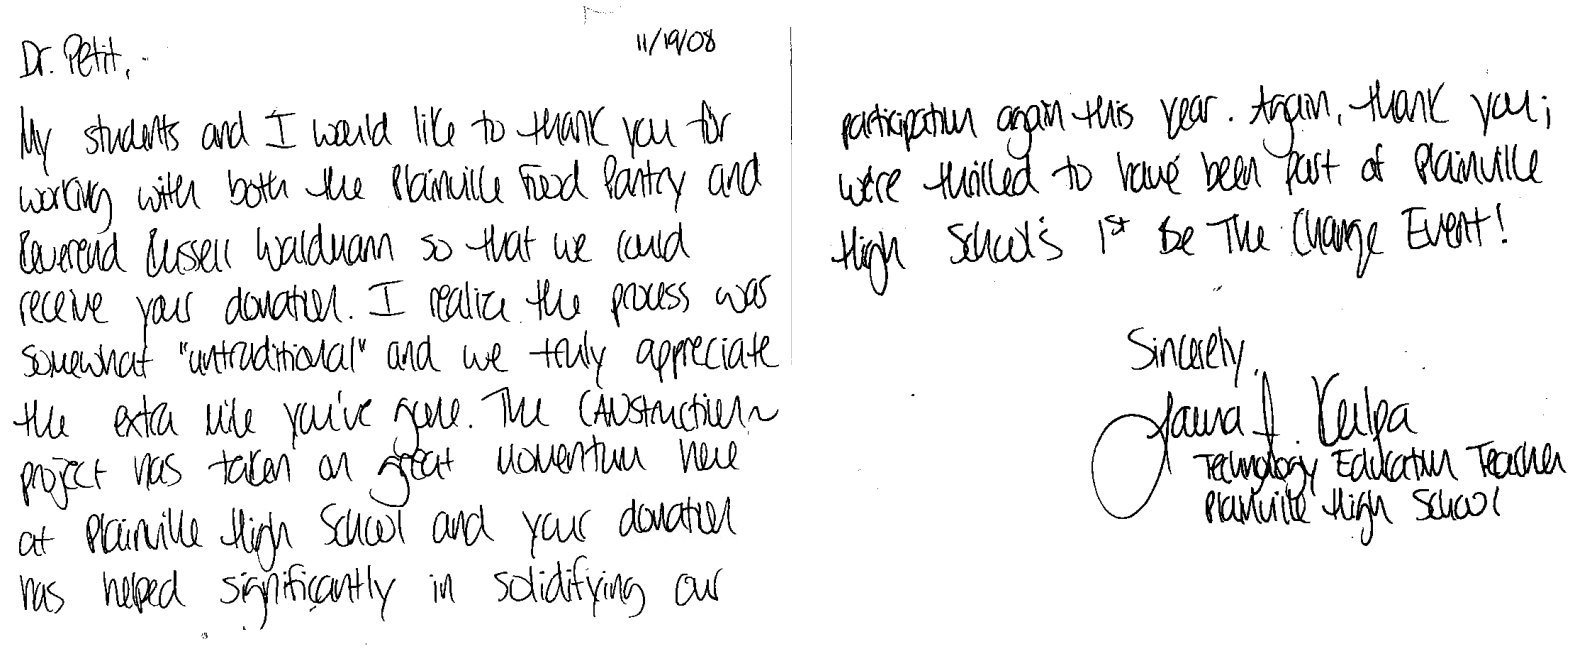 11/19/08
Dr. Petit,
My students and I would like to thank you for
working with both the Plainville Food Pantry and
Reverend Russell Waldmann so that we could
receive your donation. I realize the process was
somewhat "untraditional" and we truly appreciate
the extra mile you've gone. The CANstruction
project has taken on great momentum here
at Plainville High School and your donation
has helped significantly in solidifying our
participation again this year. Again, thank you;
we're thrilled to have been part of Plainville
High School's 1st Be The Change Event!
Sincerely,
Technology Education Teacher
Plainville High School